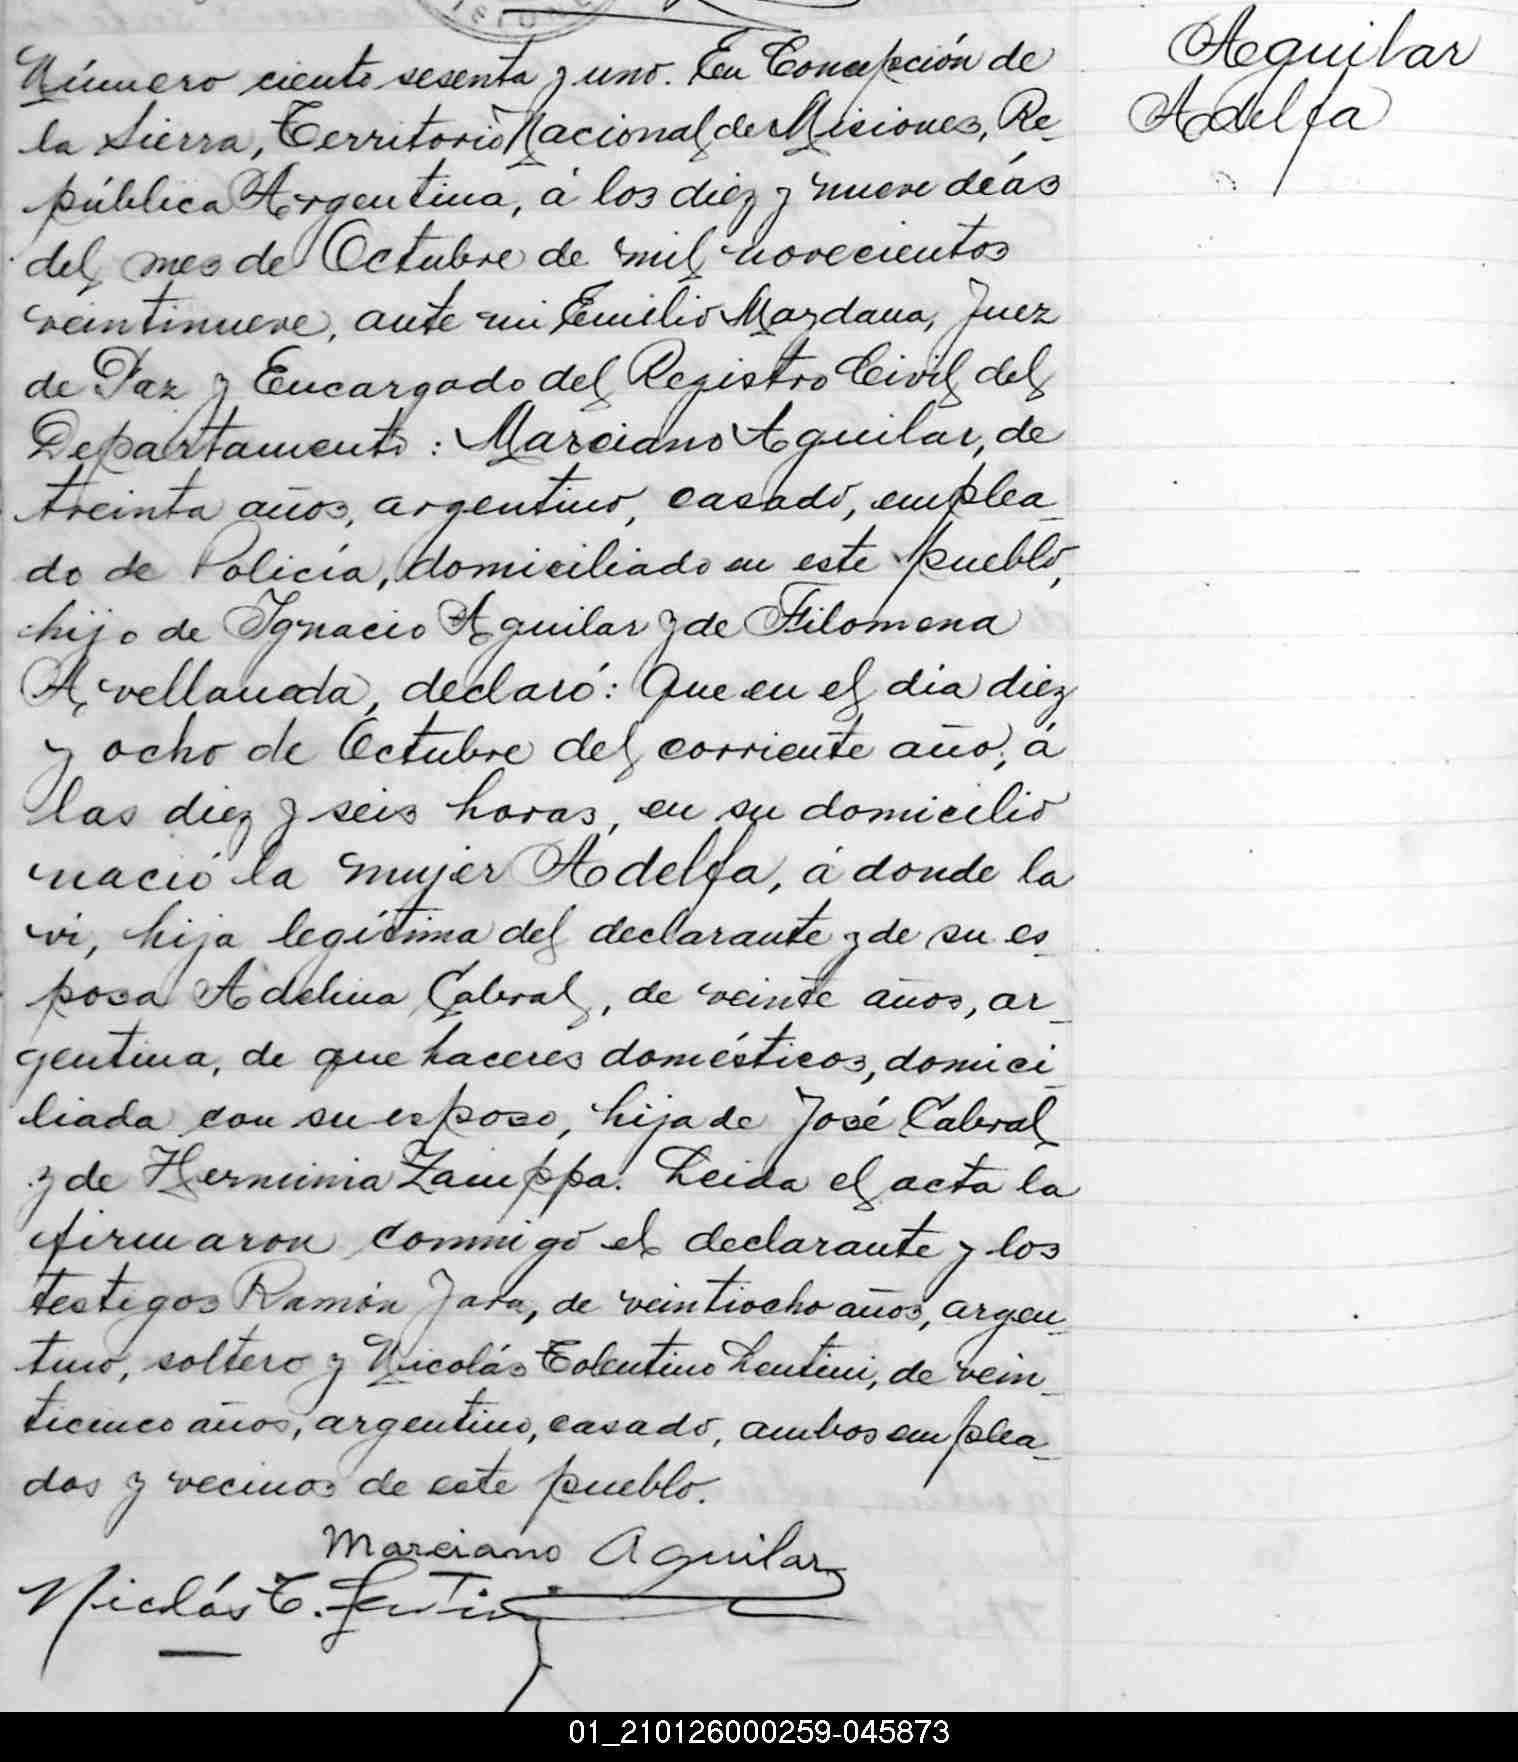 Aguilar
Adelfa
Número ciento sesenta y uno. En Concepción de
la Sierra, Territorio Nacional de Misiones, Re-
pública Argentina, á los diez y nueve días
del mes de Octubre de mil novecientos
veintinueve, ante mi Emilio Maydana, Juez
de Paz y Encargado del Registro Civil del
Departamento: Marciano Aguilar, de
treinta años, argentino, casado, emplea-
do de Policía, domiciliado en este pueblo,
hijo de Ignacio Aguilar y de Filomena
Avellaneda, declaró: Que en el dia diez
y ocho de Octubre del corriente año, á
las diez y seis horas, en su domicilio
nació la mujer Adelfa, á donde la
vi, hija legítima del declarante y de su es-
posa Adelina Cabral, de veinte años, ar-
gentina, de que haceres domésticos, domici-
liada con su esposo, hija de José Cabral
y de Herminia Zamppa. Leida el acta la
firmaron conmigo el declarante y los
testigos Ramón Jara, de veintiocho años, argen-
tino, soltero y Nicolás Tolentino Lentini, de vein-
ticinco años, argentino, casado, ambos emplea-
dos y vecinos de este pueblo.
Marciano Aguilar
Nicolás T. Lentini
01_210126000259-045873